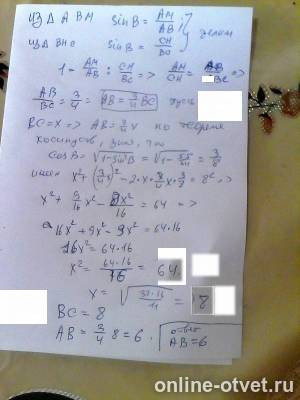 из Δ ABM sinB = AM/AB }
из Δ BHC sinB = CH/BC } делом
1 = AM/AB : CH/BC => AM/CH = AB/BC =>
AB/BC = 3/4 => AB = 3/4 BC пусть
BC = x => AB = 3/4 x по теореме
косинусов, зная, что
cosA = √1-sin²B = √1-55/64 = 3/8
имеем x² + (3/4 x)² - 2·x·3/4 x·3/8 = 8² =>
x² + 9/16 x² - 9x²/16 = 64 =>
16x² + 9x² - 9x² = 64·16
16x² = 64·16
x² = 64·16/16 = 64
x = = 8
BC = 8
AB = 3/4 8 = 6. ответ
AB = 6
online-otvet.ru